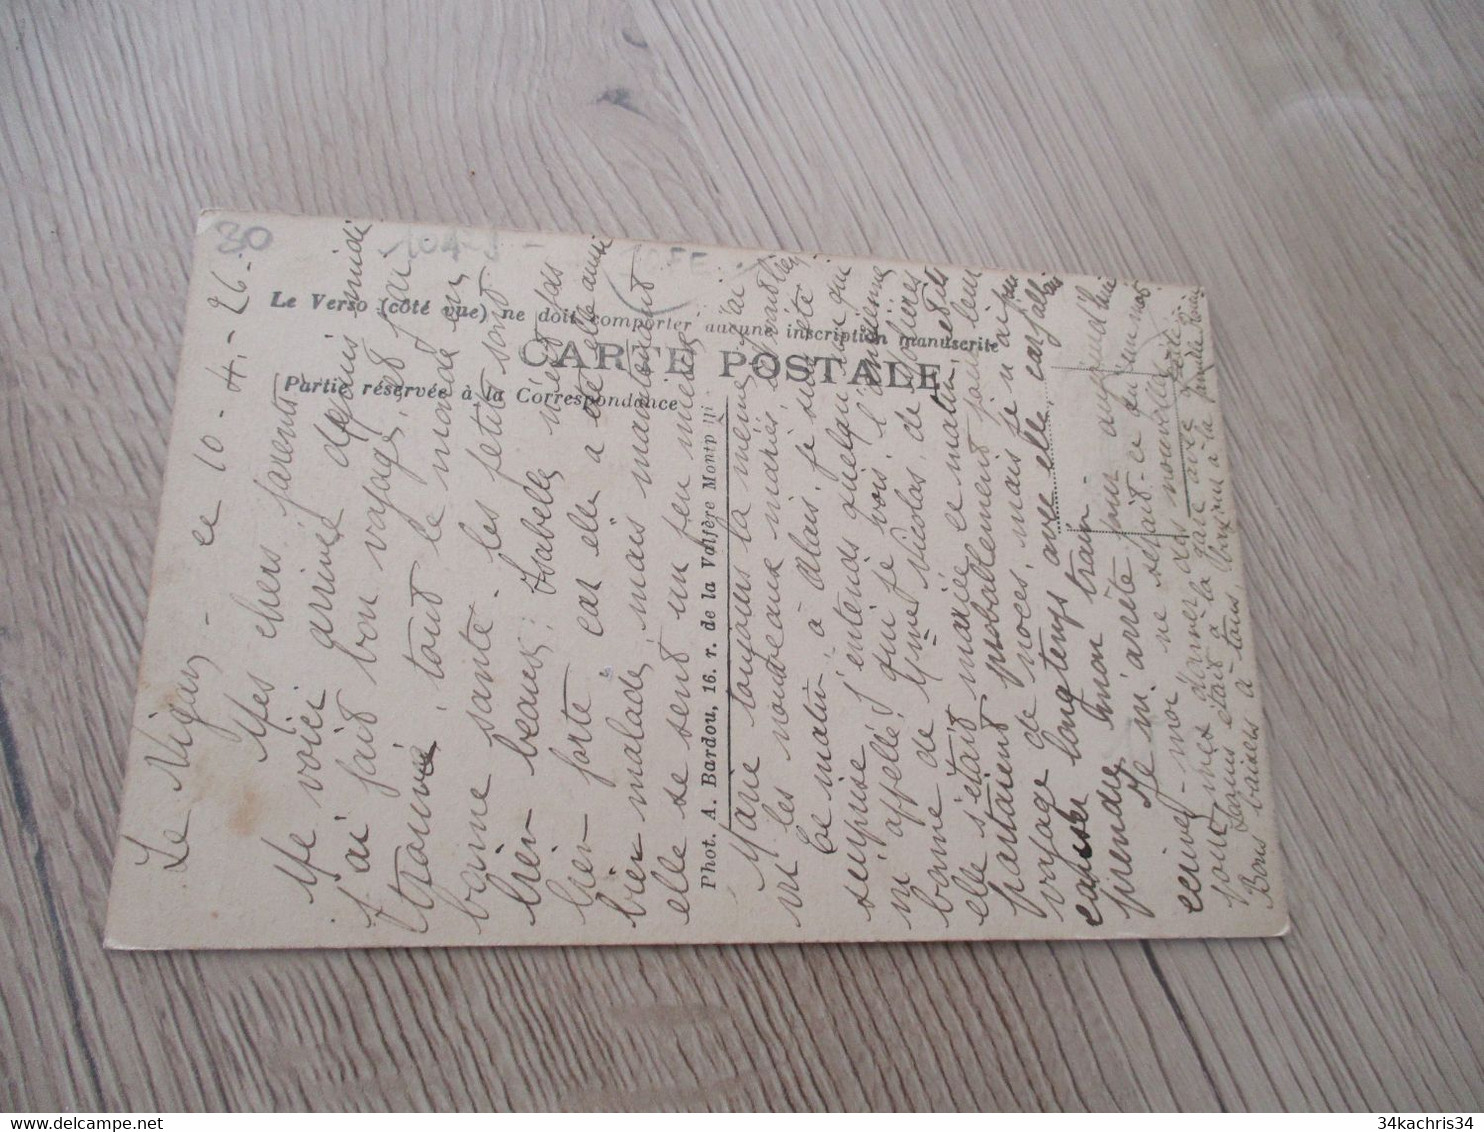 30
Le Verso (côté vue) ne doit comporter aucune inscription manuscrite
CARTE POSTALE
Partie réservée à la Correspondance
Phot. A. Bardou, 16. r. de la Valfère Montp
Le Vigan - ce 10 - 4 - 26 -
Mes chers parents
Me voici arrivé depuis midi
j'ai fait bon voyage, et j'ai
trouvé tout le monde en
bonne santé - les petits sont
bien beaux; Isabelle n'est pas
bien forte car elle a été elle aussi
bien malade, mais maintenant
elle se sent un peu mieux
Marie toujours la même, j'ai
vu les nouveaux mariés,
Ce matin à Alais, je suis été
surprise j'entends quelqu'un que
m'appelle, qui je vois, l'ancienne
bonne de Mme Nicolas, de
elle s'était mariée ce matin, et ils
partaient probablement pour leur
voyage de noces, mais je n'ai pu
causer longtemps avec elle, car fallait
prendre mon train -
Je m'arrête pour aujourd'hui
écrivez-moi ne serait-ce qu'un mot
pour me donner des nouvelles
était à la gare avec
Bons baisers à tous
34kachris34